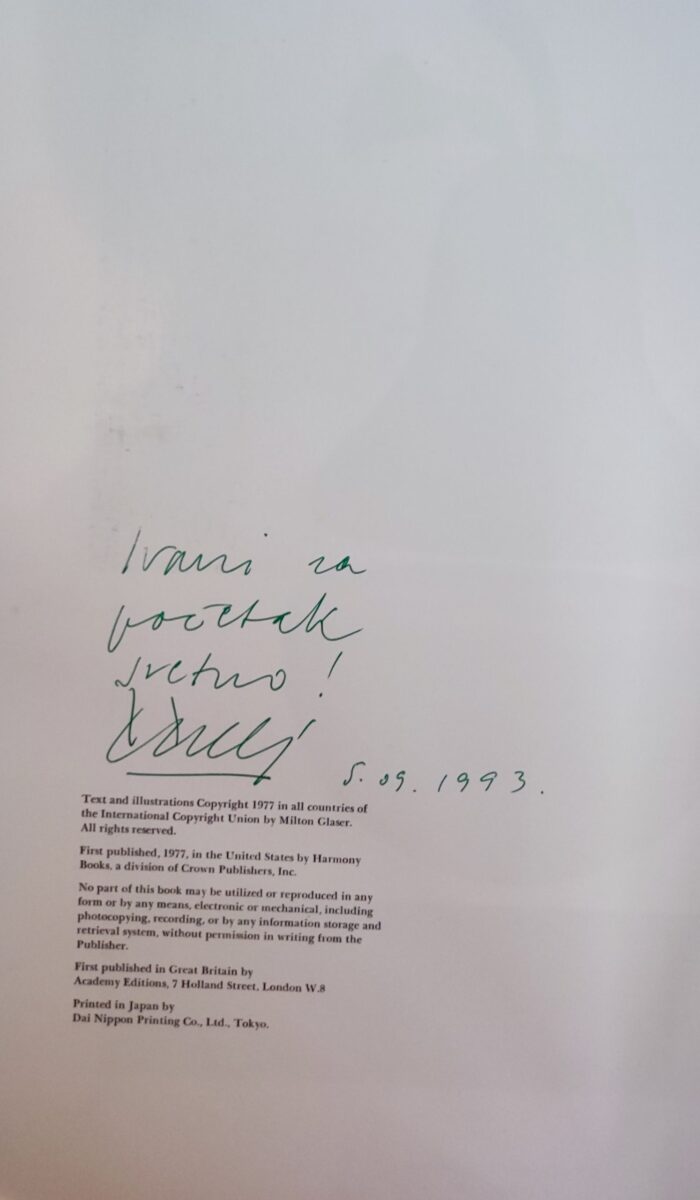 Ivani za
početak
sretno!
5.09.1993.
Text and illustrations Copyright 1977 in all countries of
the International Copyright Union by Milton Glaser.
All rights reserved.
First published, 1977, in the United States by Harmony
Books, a division of Crown Publishers, Inc.
No part of this book may be utilized or reproduced in any
form or by any means, electronic or mechanical, including
photocopying, recording, or by any information storage and
retrieval system, without permission in writing from the
Publisher.
First published in Great Britain by
Academy Editions, 7 Holland Street, London W.8
Printed in Japan by
Dai Nippon Printing Co., Ltd., Tokyo.